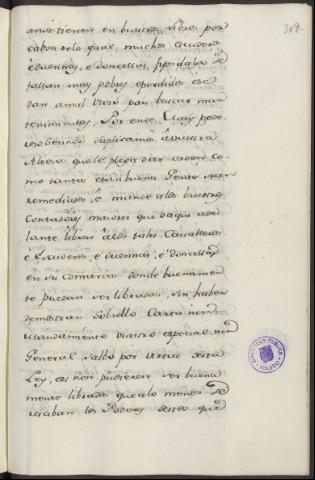 309
ansi tienen en buestros Libros, por
cabsa delo qual, muchos escuderos
é Duennas, é Doncellas, fijosdalgo se
fallan muy pobres, e perdidos, e se
dan a mal vivir por buscar man
tenimientos, Por ende, Muy pode
roso Sennor suplicamos á vuestra
Altesa que le plega dar orden co
mo tanta e tan buena Gente sean
remediados, é mande a los buestros
Contadores maiores que daqui ade
lante libren á los tales Cavalleros
é Escuderos, é Duennas, é Doncellas
en su Comarca donde buenamen
te puedan ser librados, sin haber
demostrar Sobrello Carta nin
Mandamiento vuestro especial nin
General salvo por virtud desta
Ley, e si non pudieren ser buena
mente librados que alo menos se
reciban los Poderes desto que
BIBLIOTECA PUBLICA
TOLEDO